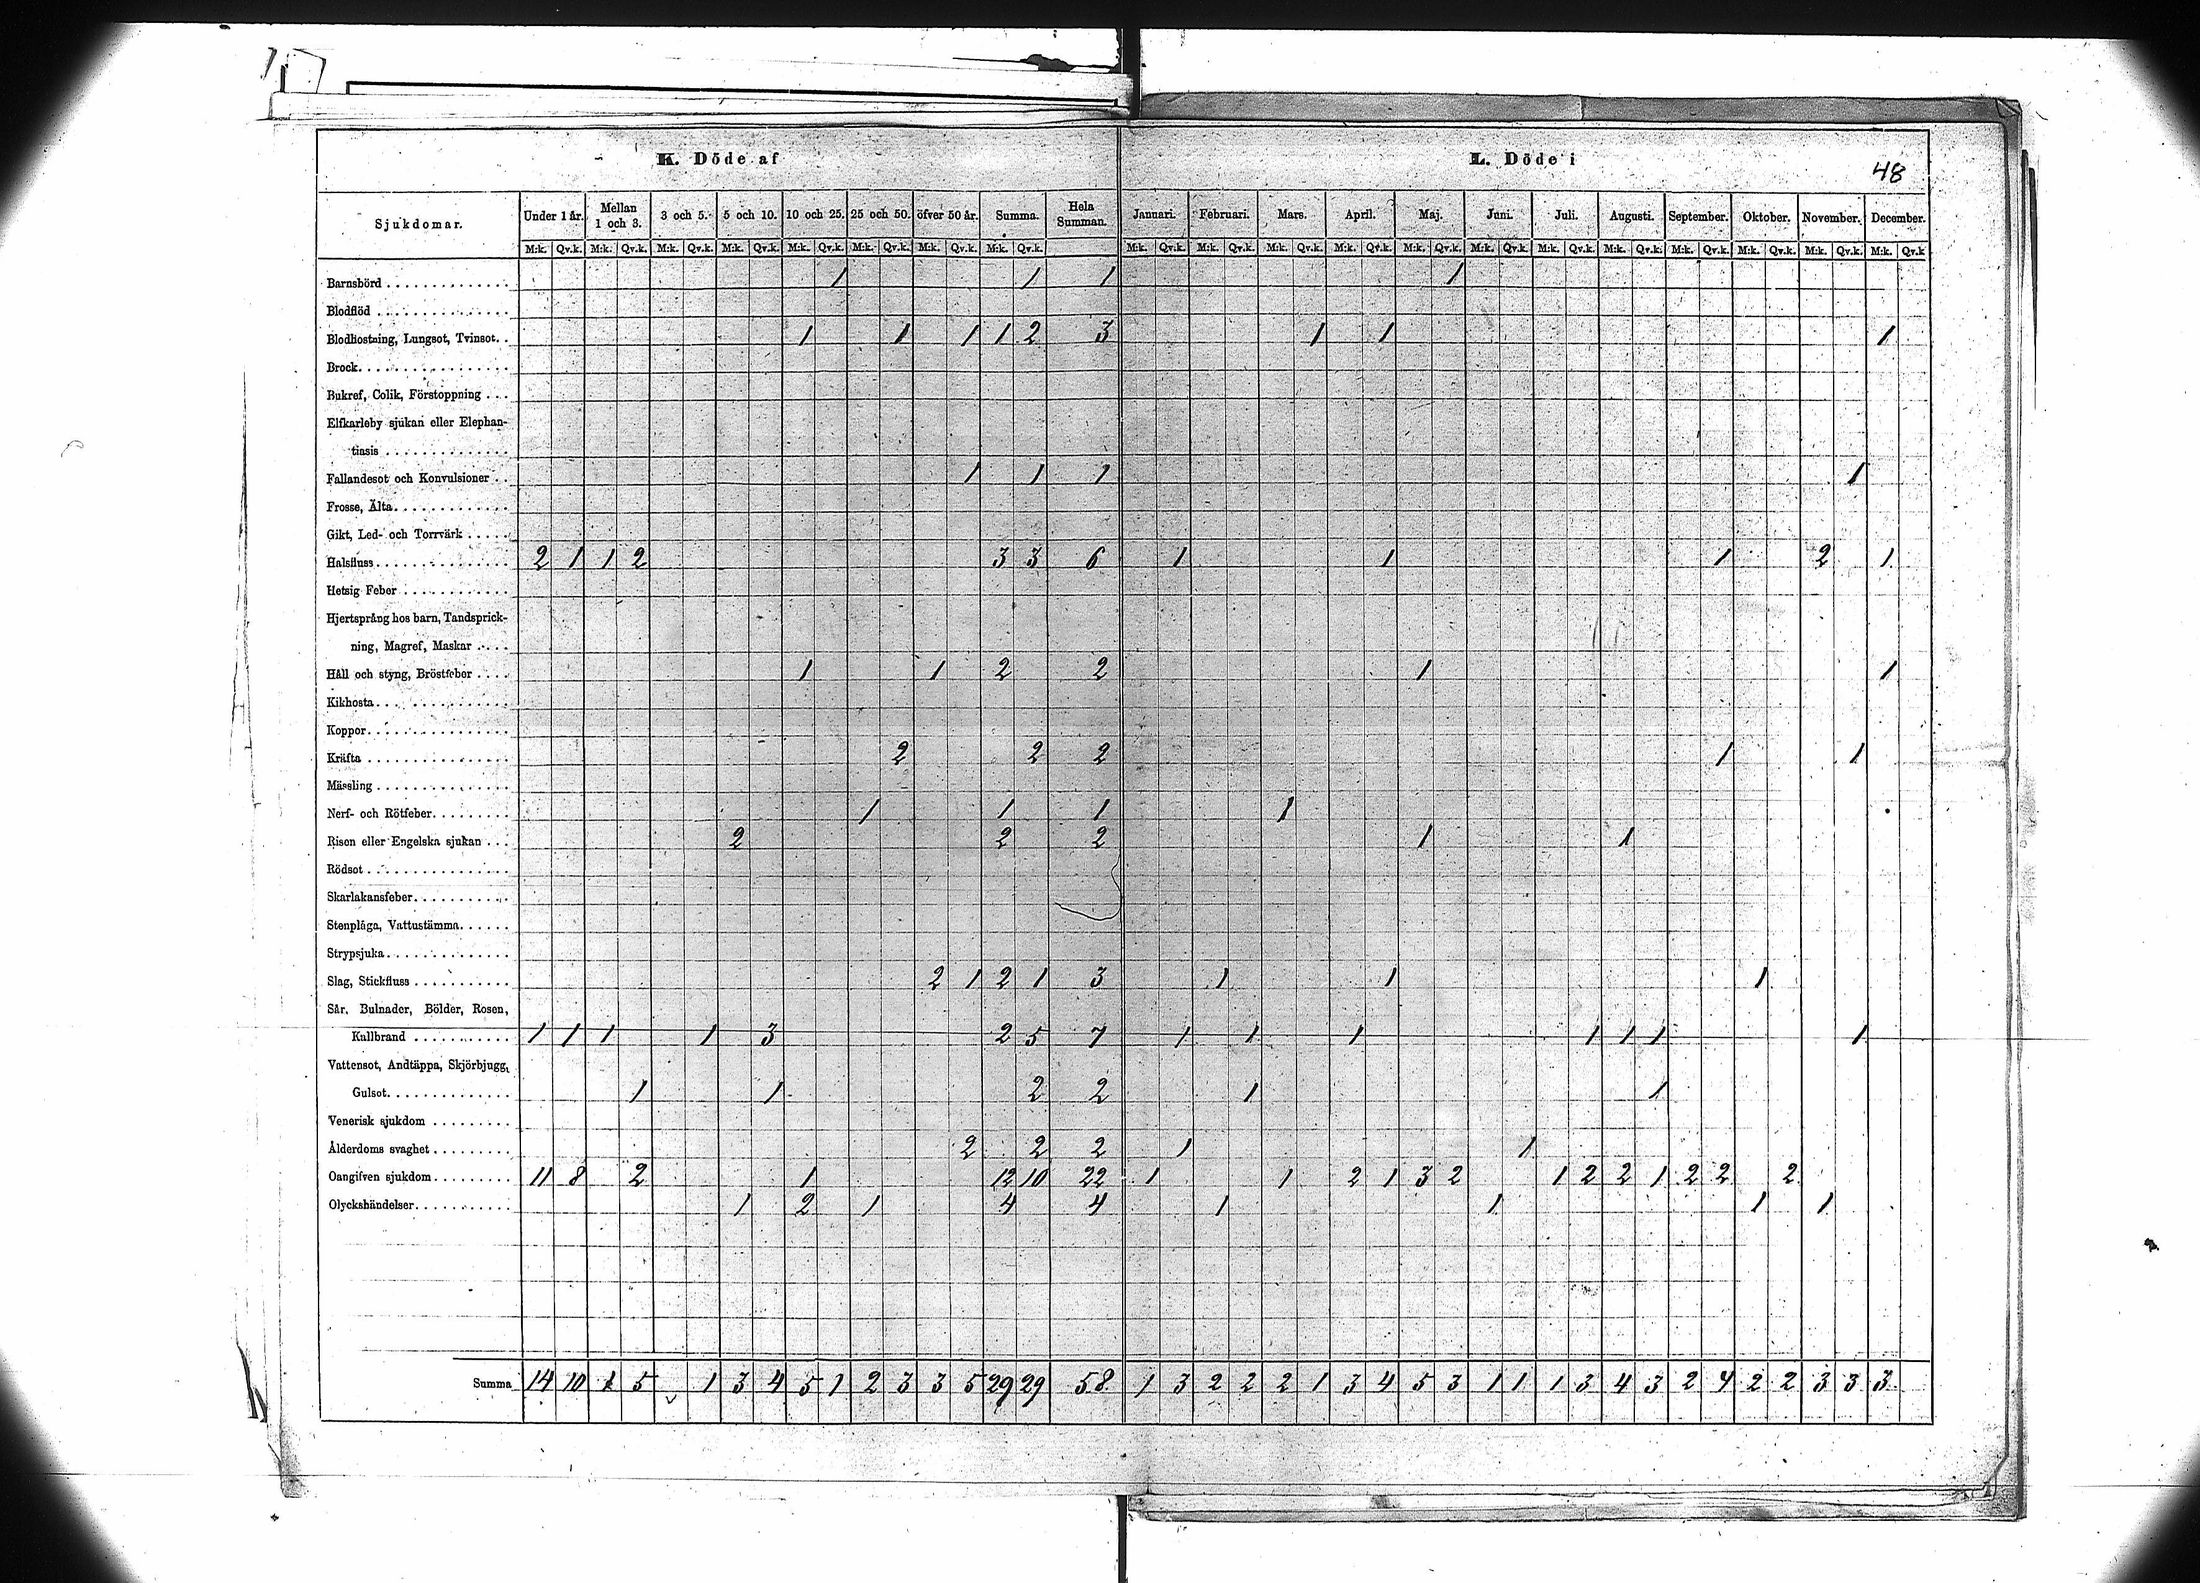 K. Döde af L. Döde i 48
Sjukdomar. Under 1 år. Mellan 1 och 3. 3 och 5. 5 och 10. 10 och 25. 25 och 50. öfver 50 år. Summa. Hela Summan. Januari. Februari. Mars. April. Maj. Juni. Juli. Augusti. September. Oktober. November. December.
M:k. Qv.k. M:k. Qv.k. M:k. Qv.k. M:k. Qv.k. M:k. Qv.k. M:k. Qv.k. M:k. Qv.k. M:k. Qv.k. M:k. Qv.k. M:k. Qv.k. M:k. Qv.k. M:k. Qv.k. M:k. Qv.k. M:k. Qv.k. M:k. Qv.k. M:k. Qv.k. M:k. Qv.k. M:k. Qv.k. M:k. Qv.k. M:k. Qv.k
Barnsbörd 1 1 1 1
Blodflöd
Blodhostning, Lungsot, Tvinsot. 1 1 1 1 2 3 1 1 1
Brock
Bukref, Colik, Förstoppning
Elfkarleby sjukan eller Elephan-
tiasis
Fallandesot och Konvulsioner 1 1 1 1
Frosse, Älta
Gikt, Led- och Torrvärk
Halsfluss 2 1 1 2 3 3 6 1 1 1 2 1
Hetsig Feber
Hjertsprång hos barn, Tandsprick-
ning, Magref, Maskar
Håll och styng, Bröstfeber 1 1 2 2 1 1
Kikhosta
Koppor
Kräfta 2 2 2 1 1
Mässling
Nerf- och Rötfeber 1 1 1 1
Risen eller Engelska sjukan 2 2 2 1 1
Rödsot
Skarlakansfeber
Stenplåga, Vattustämma
Strypsjuka
Slag, Stickfluss 2 1 2 1 3 1 1 1
Sår, Bulnader, Bölder, Rosen,
Kallbrand 1 1 1 1 3 2 5 7 1 1 1 1 1 1 1
Vattensot, Andtäppa, Skjörbjugg,
Gulsot 1 1 2 2 1 1
Venerisk sjukdom
Ålderdoms svaghet 2 2 2 1 1
Oangifven sjukdom 11 8 2 1 12 10 22 1 1 2 1 3 2 1 2 2 1 2 2 2
Olyckshändelser 1 2 1 4 4 1 1 1 1
Summa 14 10 5 1 3 4 5 1 2 3 3 5 29 29 58 1 3 2 2 2 1 3 4 5 3 1 1 1 3 4 3 2 4 2 2 3 3 3